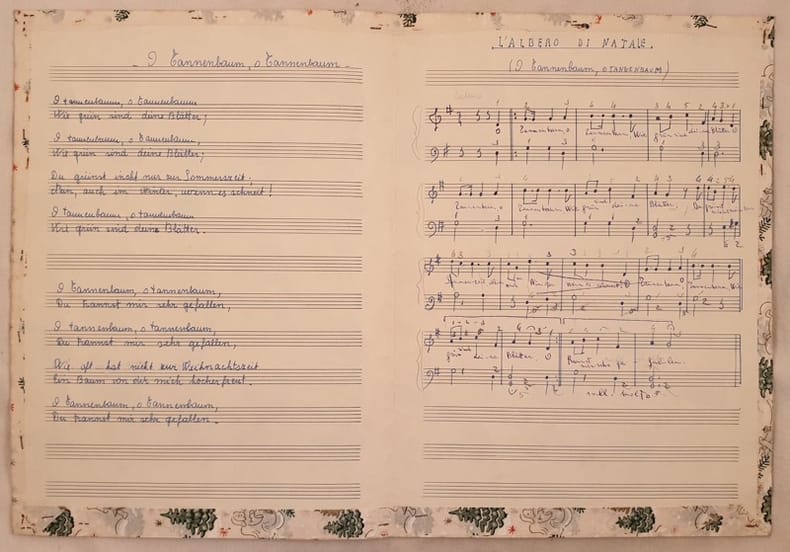 O Tannenbaum, o Tannenbaum
O tannenbaum, o tannenbaum
Wie grün sind deine Blätter;
O tannenbaum, o tannenbaum,
Wie grün sind deine Blätter;
Du grünst nicht nur zur Sommerszeit.
Nein, auch im Winter, wenn es schneit!
O tannenbaum, o tannenbaum
Wie grün sind deine Blätter.
O Tannenbaum, o tannenbaum,
Du kannst mir sehr gefallen,
O tannenbaum, o tannenbaum,
Du kannst mir sehr gefallen,
Wie oft hat nicht zur Weihnachtszeit
Ein Baum von dir mich hocherfreut.
O Tannenbaum, o Tannenbaum,
Du kannst mir sehr gefallen.
L'ALBERO DI NATALE.
(O Tannenbaum, O TANNENBAUM)
Tannenbaum, o Tannenbaum, Wie grün sind deine Blätter O
Tannenbaum, o Tannenbaum, Wie grün sind deine Blätter, Du grünst
Tannenbaum o Tannenbaum, Wie
grün sind deine Blätter. O Kannst